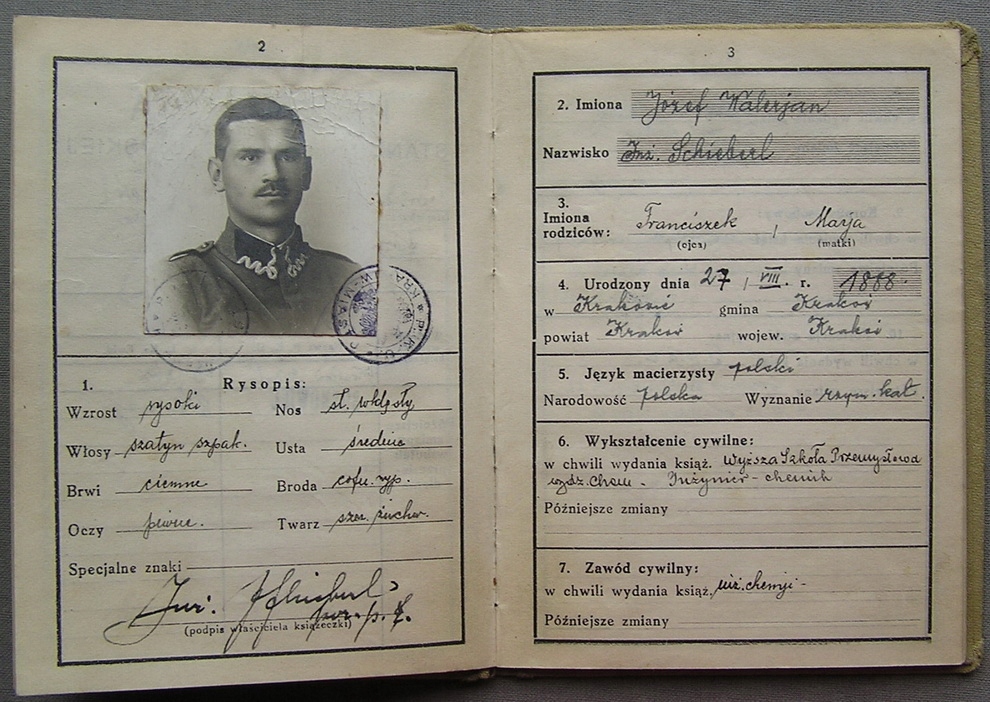 2
1. Rysopis:
Wzrost wysoki Nos st. wklęsły
Włosy szatyn szpak. Usta średnie
Brwi ciemne Broda cofn. wyp.
Oczy piwne. Twarz
Specjalne znaki
Inż.
(podpis właściciela książeczki)
3
2. Imiona Józef Walerjan
Nazwisko Inż. Schieberl
3.
Imiona
rodziców: Franciszek , Marja
(ojca) (matki)
4. Urodzony dnia 27 / VIII. r. 1888.
w Krakowie gmina Kraków
powiat Kraków wojew. Kraków
5. Język macierzysty polski
Narodowość polska Wyznanie rzym. kat.
6. Wykształcenie cywilne:
w chwili wydania książ. Wyższa Szkoła Przemysłowa
wydz. Chem. - Inżynier-chemik
Późniejsze zmiany
7. Zawód cywilny:
w chwili wydania książ. inż. chemji-
Późniejsze zmiany